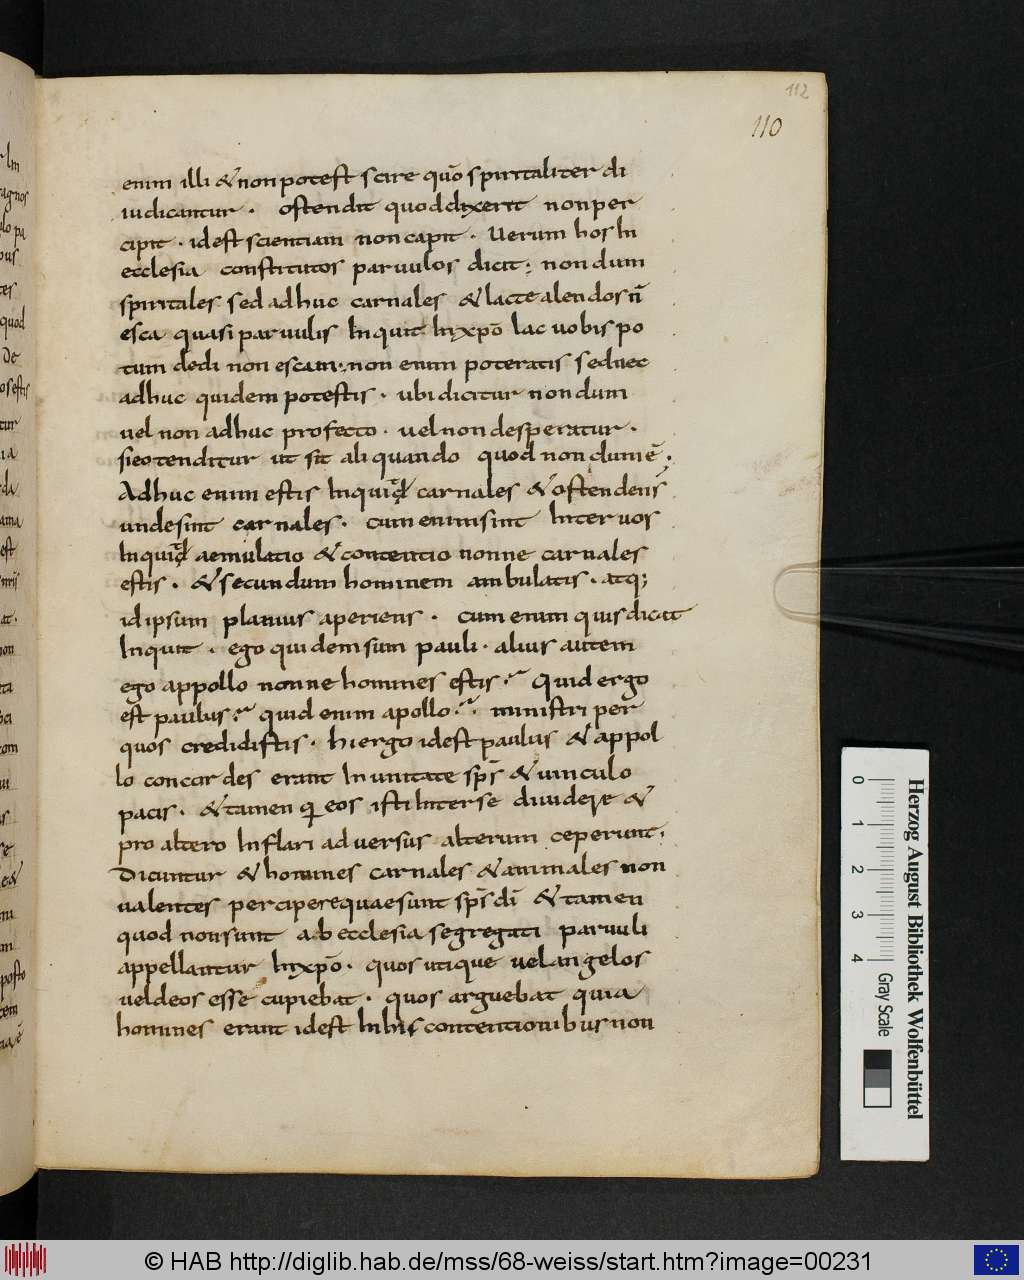 112
110
enim illi & non potest scire quō spiritaliter di
iudicantur · ostendit quod dixerit non per
cipit · id est scientiam non capit · Uerum hos In
ecclesia constitutos paruulos dicit; nondum
spiritales sed adhuc carnales & lacte alendos n̄
esca quasi paruulis Inquit Inxpō lac uobis po
tum dedi non escam; non enim poteratis sed nec
adhuc quidem potestis · ubi dicitur nondum
uel non adhuc profecto · uel non desperatur ·
sic otenditur ut sit aliquando quod nondum ē ·
Adhuc enim estis Inquid carnales & ostendens
unde sint carnales · cum enim sint Inter uos
Inquid aemulatio & contentio nonne carnales
estis · & secundum hominem ambulatis · atq;
id ipsum planius aperiens · cum enim quis dicit
Inquit · ego quidem sum pauli · alius autem
ego appollo nonne homines estis · Quid ergo
est paulus quid enim apollo · ministri per
quos credidistis · hi ergo id est paulus & appol
lo concordes erant In unitate sp̄s & uinculo
pacis · & tamen q eos isti Inter se diuidere &
pro altero Inflari aduersus alterum ceperunt;
Dicuntur & homines carnales & animales non
ualentes percipere quae sunt sp̄s dī & tamen
quod non sunt ab ecclesia segregati paruuli
appellantur Inxpō · quos utique uel angelos
uel deos esse cupiebat · quos arguebat quia
homines erant id est In his contentionibus non
0 1 2 3 4
Gray Scale
Herzog August Bibliothek Wolfenbüttel
© HAB http://diglib.hab.de/mss/68-weiss/start.htm?image=00231